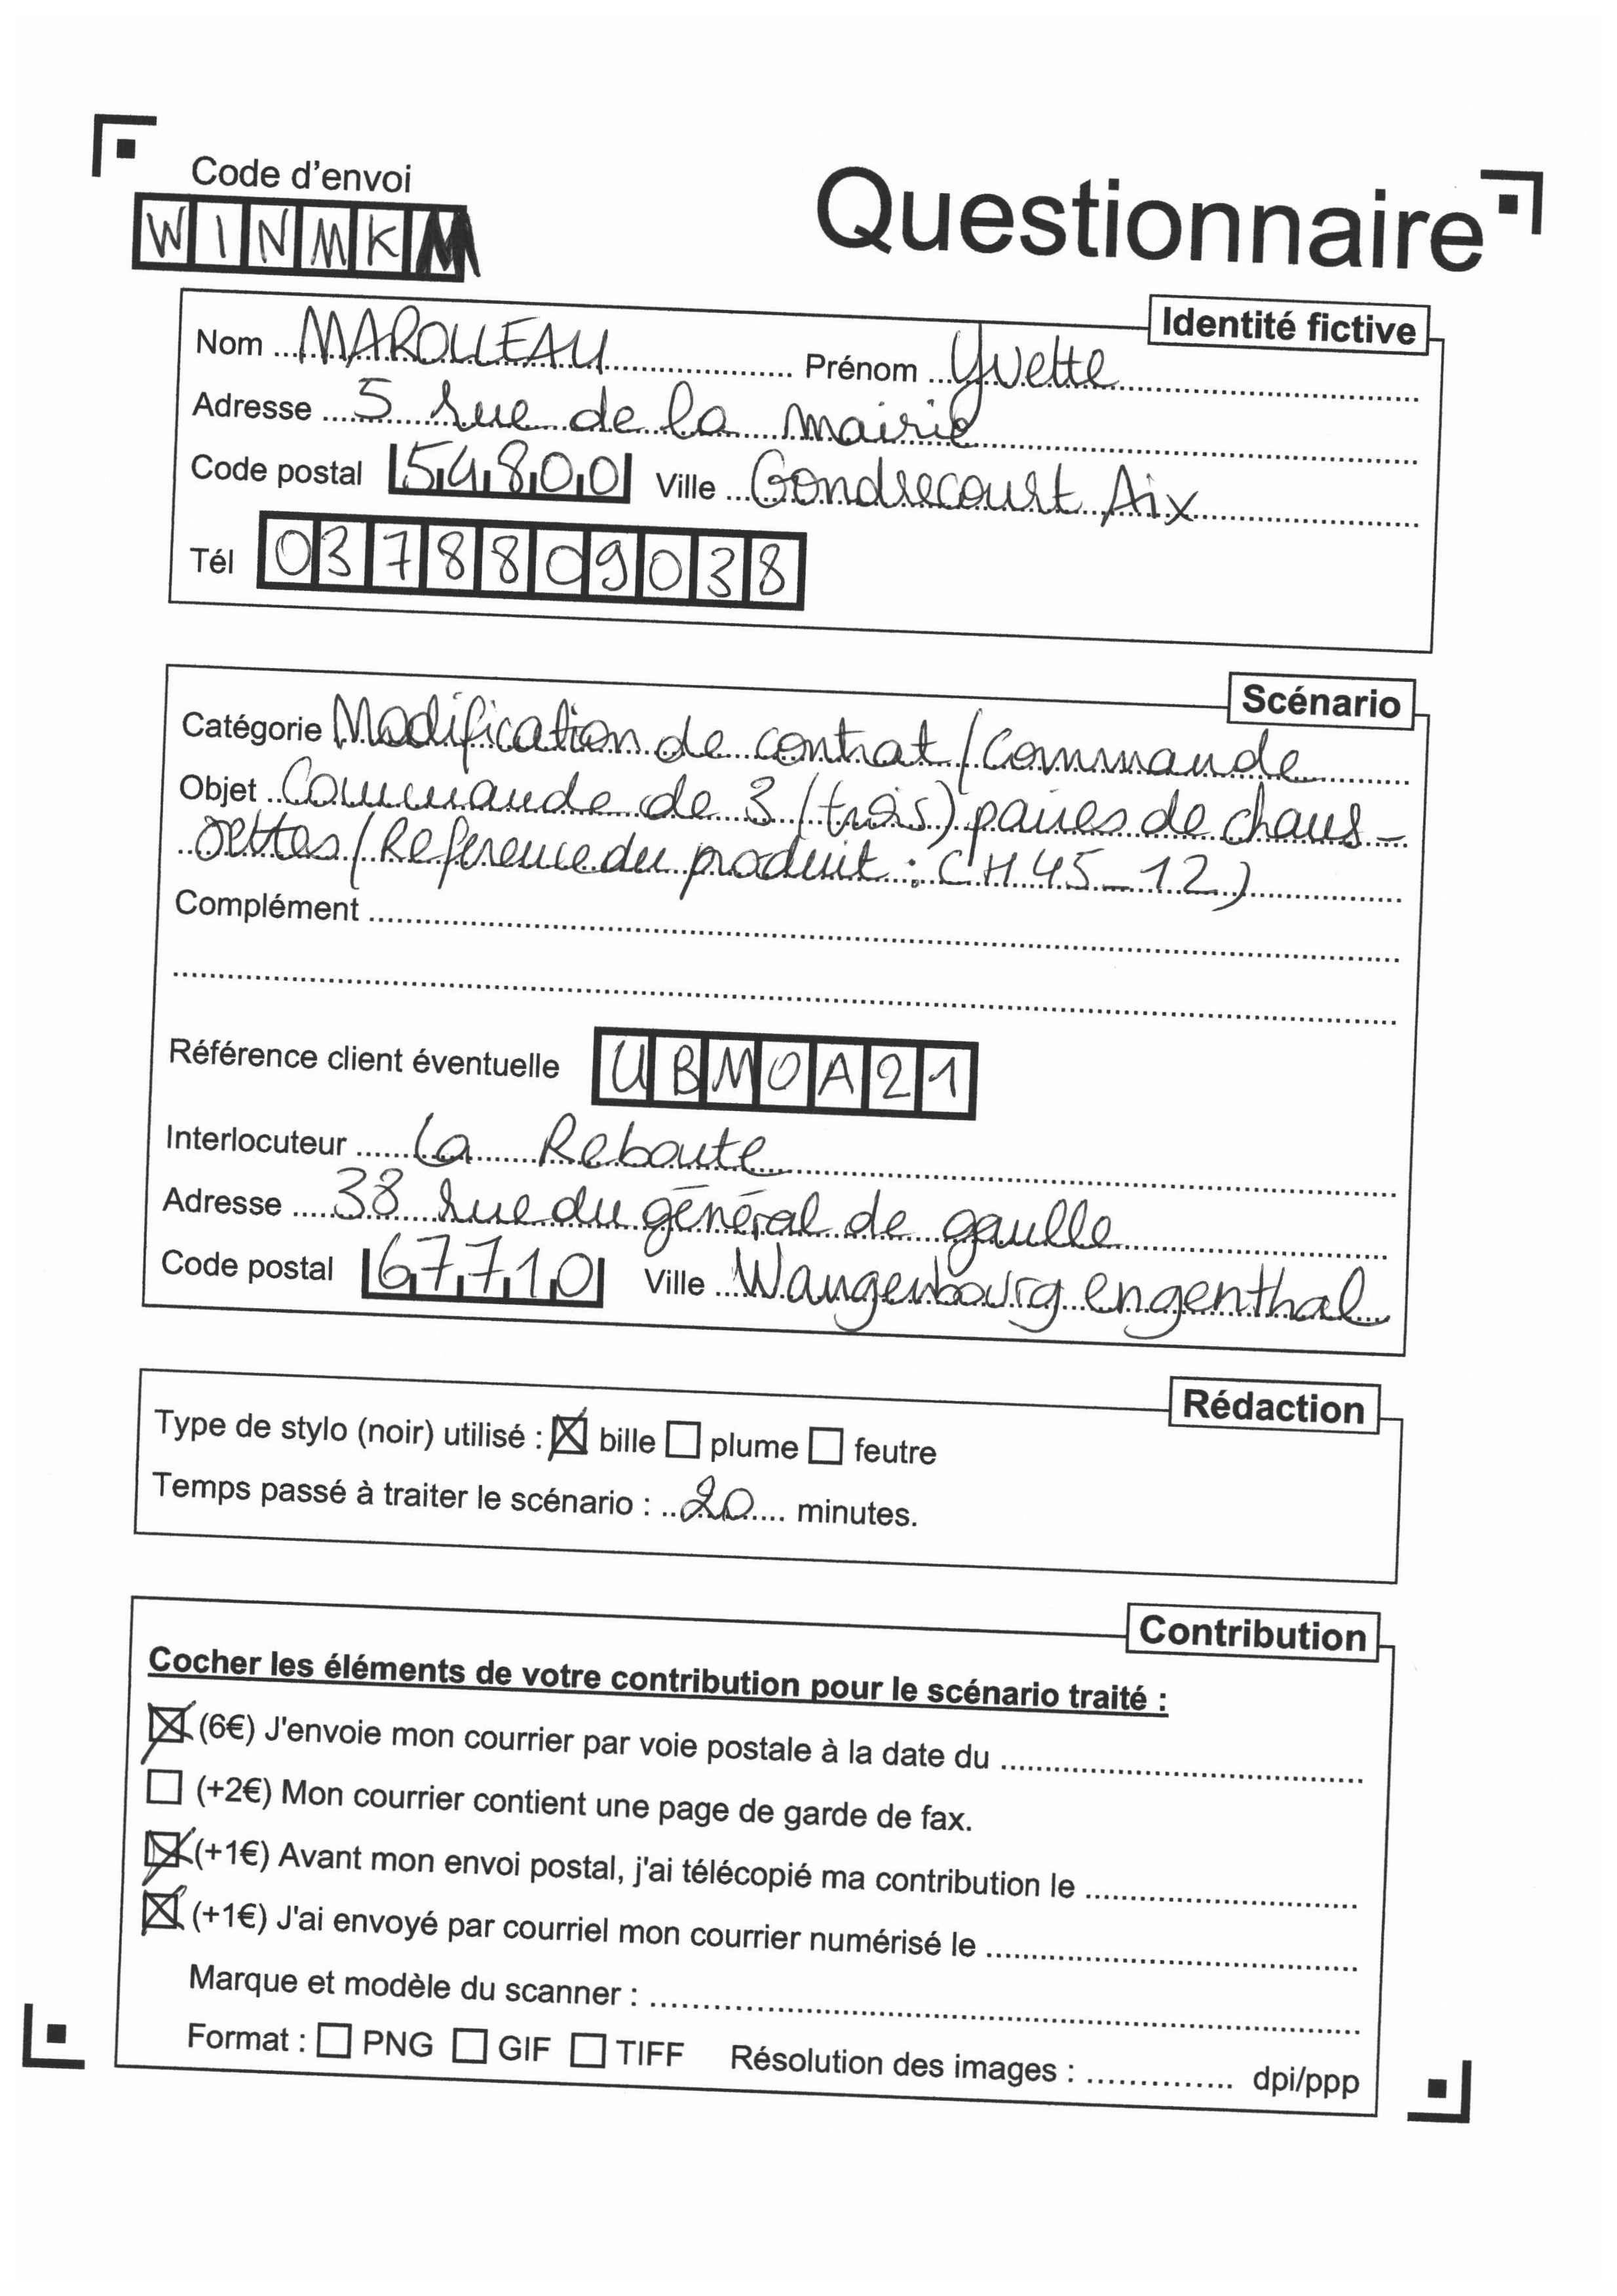 Code d'envoi
WINMKM
Questionnaire
Identité fictive
Nom MAROLLEAU Prénom Yvette
Adresse 5 rue de la mairie
Code postal 54800 Ville Gondrecourt Aix
Tél 0378809038
Scénario
Catégorie Modification de contrat/Commande
Objet Commande de 3 (trois) paires de chaus-
settes (Reference du produit : CH45_12)
Complément
Référence client éventuelle UBMOA21
Interlocuteur La Reboute
Adresse 38 rue du général de gaulle
Code postal 67710 Ville Wangenbourg engenthal
Rédaction
Type de stylo (noir) utilisé : bille plume feutre
Temps passé à traiter le scénario : 20 minutes.
Contribution
Cocher les éléments de votre contribution pour le scénario traité :
(6€) J'envoie mon courrier par voie postale à la date du
(+2€) Mon courrier contient une page de garde de fax.
(+1€) Avant mon envoi postal, j'ai télécopié ma contribution le
(+1€) J'ai envoyé par courriel mon courrier numérisé le
Marque et modèle du scanner :
Format : PNG GIF TIFF Résolution des images : dpi/ppp